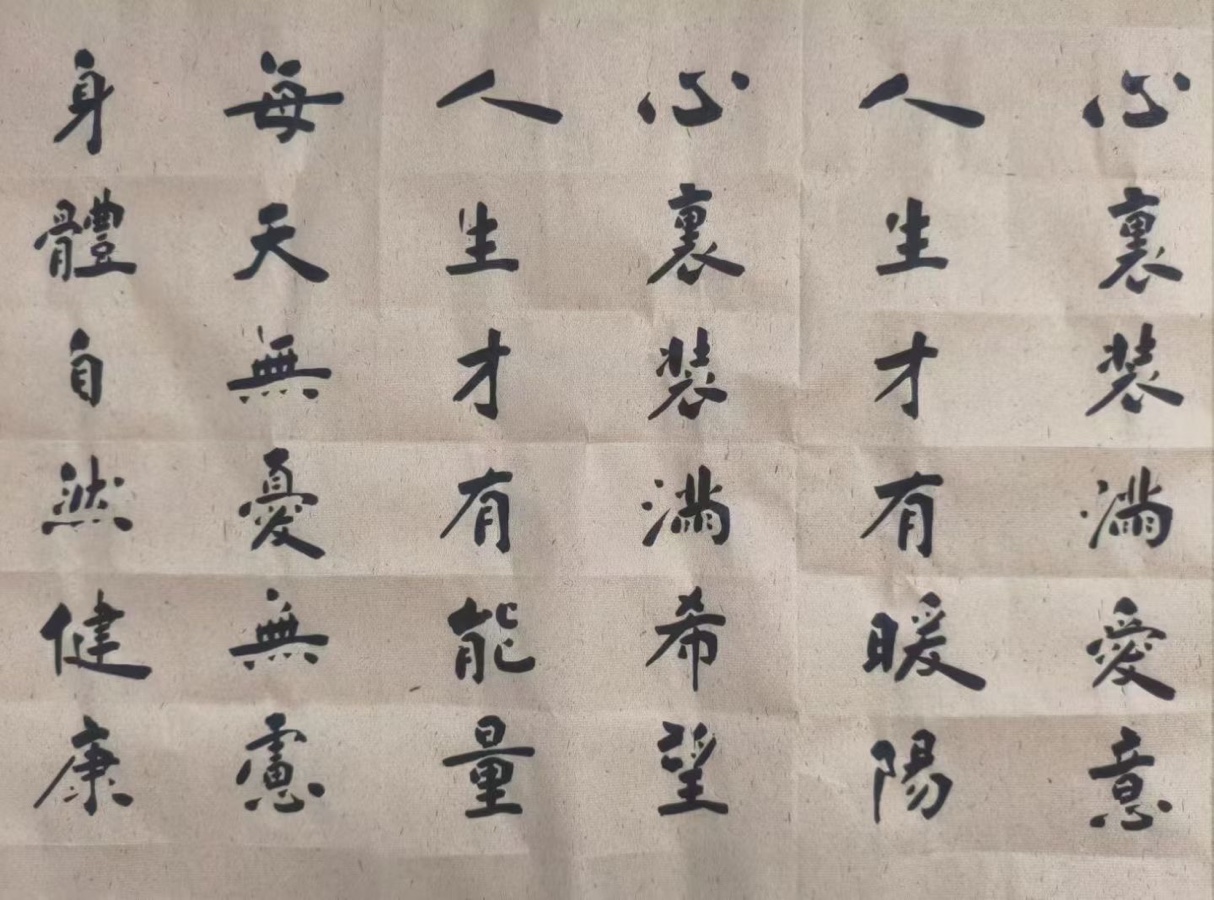 心裏装滿愛意
人生才有暖陽
心裏装滿希望
人生才有能量
每天無憂無慮
身體自然健康